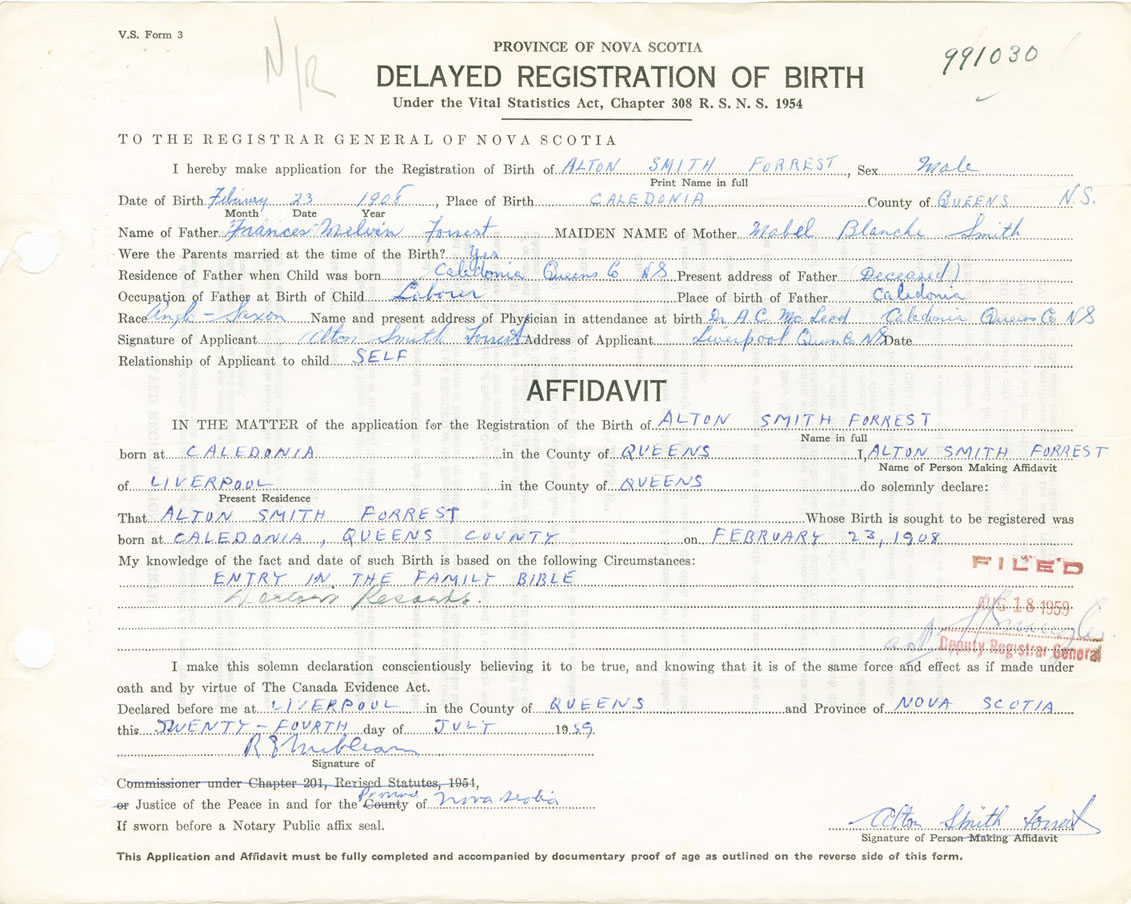 V.S. Form 3
N/R
991030
PROVINCE OF NOVA SCOTIA
DELAYED REGISTRATION OF BIRTH
Under the Vital Statistics Act, Chapter 308 R. S. N. S. 1954
TO THE REGISTRAR GENERAL OF NOVA SCOTIA
I hereby make application for the Registration of Birth of ALTON SMITH FORREST, Sex Male
Print Name in full
Date of Birth February 23 1908, Place of Birth CALEDONIA County of QUEENS N.S.
Month Date Year
Name of Father Frances Melvin Forrest MAIDEN NAME of Mother Mabel Blanche Smith
Were the Parents married at the time of the Birth? Yes
Residence of Father when Child was born Caledonia Queens Co NS Present address of Father (Deceased)
Occupation of Father at Birth of Child Laborer Place of birth of Father Caledonia
Race Anglo-Saxon Name and present address of Physician in attendance at birth Dr A.C. McLeod Caledonia Queens Co NS
Signature of Applicant Alton Smith Forrest Address of Applicant Liverpool Queens Co NS Date
Relationship of Applicant to child SELF
AFFIDAVIT
IN THE MATTER of the application for the Registration of the Birth of ALTON SMITH FORREST
Name in full
born at CALEDONIA in the County of QUEENS I, ALTON SMITH FORREST
Name of Person Making Affidavit
of LIVERPOOL in the County of QUEENS do solemnly declare:
Present Residence
That ALTON SMITH FORREST Whose Birth is sought to be registered was
born at CALEDONIA, QUEENS COUNTY on FEBRUARY 23, 1908
My knowledge of the fact and date of such Birth is based on the following Circumstances:
ENTRY IN THE FAMILY BIBLE
FILED
Records.
AUG 18 1959
Deputy Registrar General
I make this solemn declaration conscientiously believing it to be true, and knowing that it is of the same force and effect as if made under
oath and by virtue of The Canada Evidence Act.
Declared before me at LIVERPOOL in the County of QUEENS and Province of NOVA SCOTIA
this TWENTY-FOURTH day of JULY 1959
Signature of
Commissioner under Chapter 201, Revised Statutes, 1954,
or Justice of the Peace in and for the County Province of Nova Scotia
If sworn before a Notary Public affix seal.
Alton Smith Forrest
Signature of Person Making Affidavit
This Application and Affidavit must be fully completed and accompanied by documentary proof of age as outlined on the reverse side of this form.